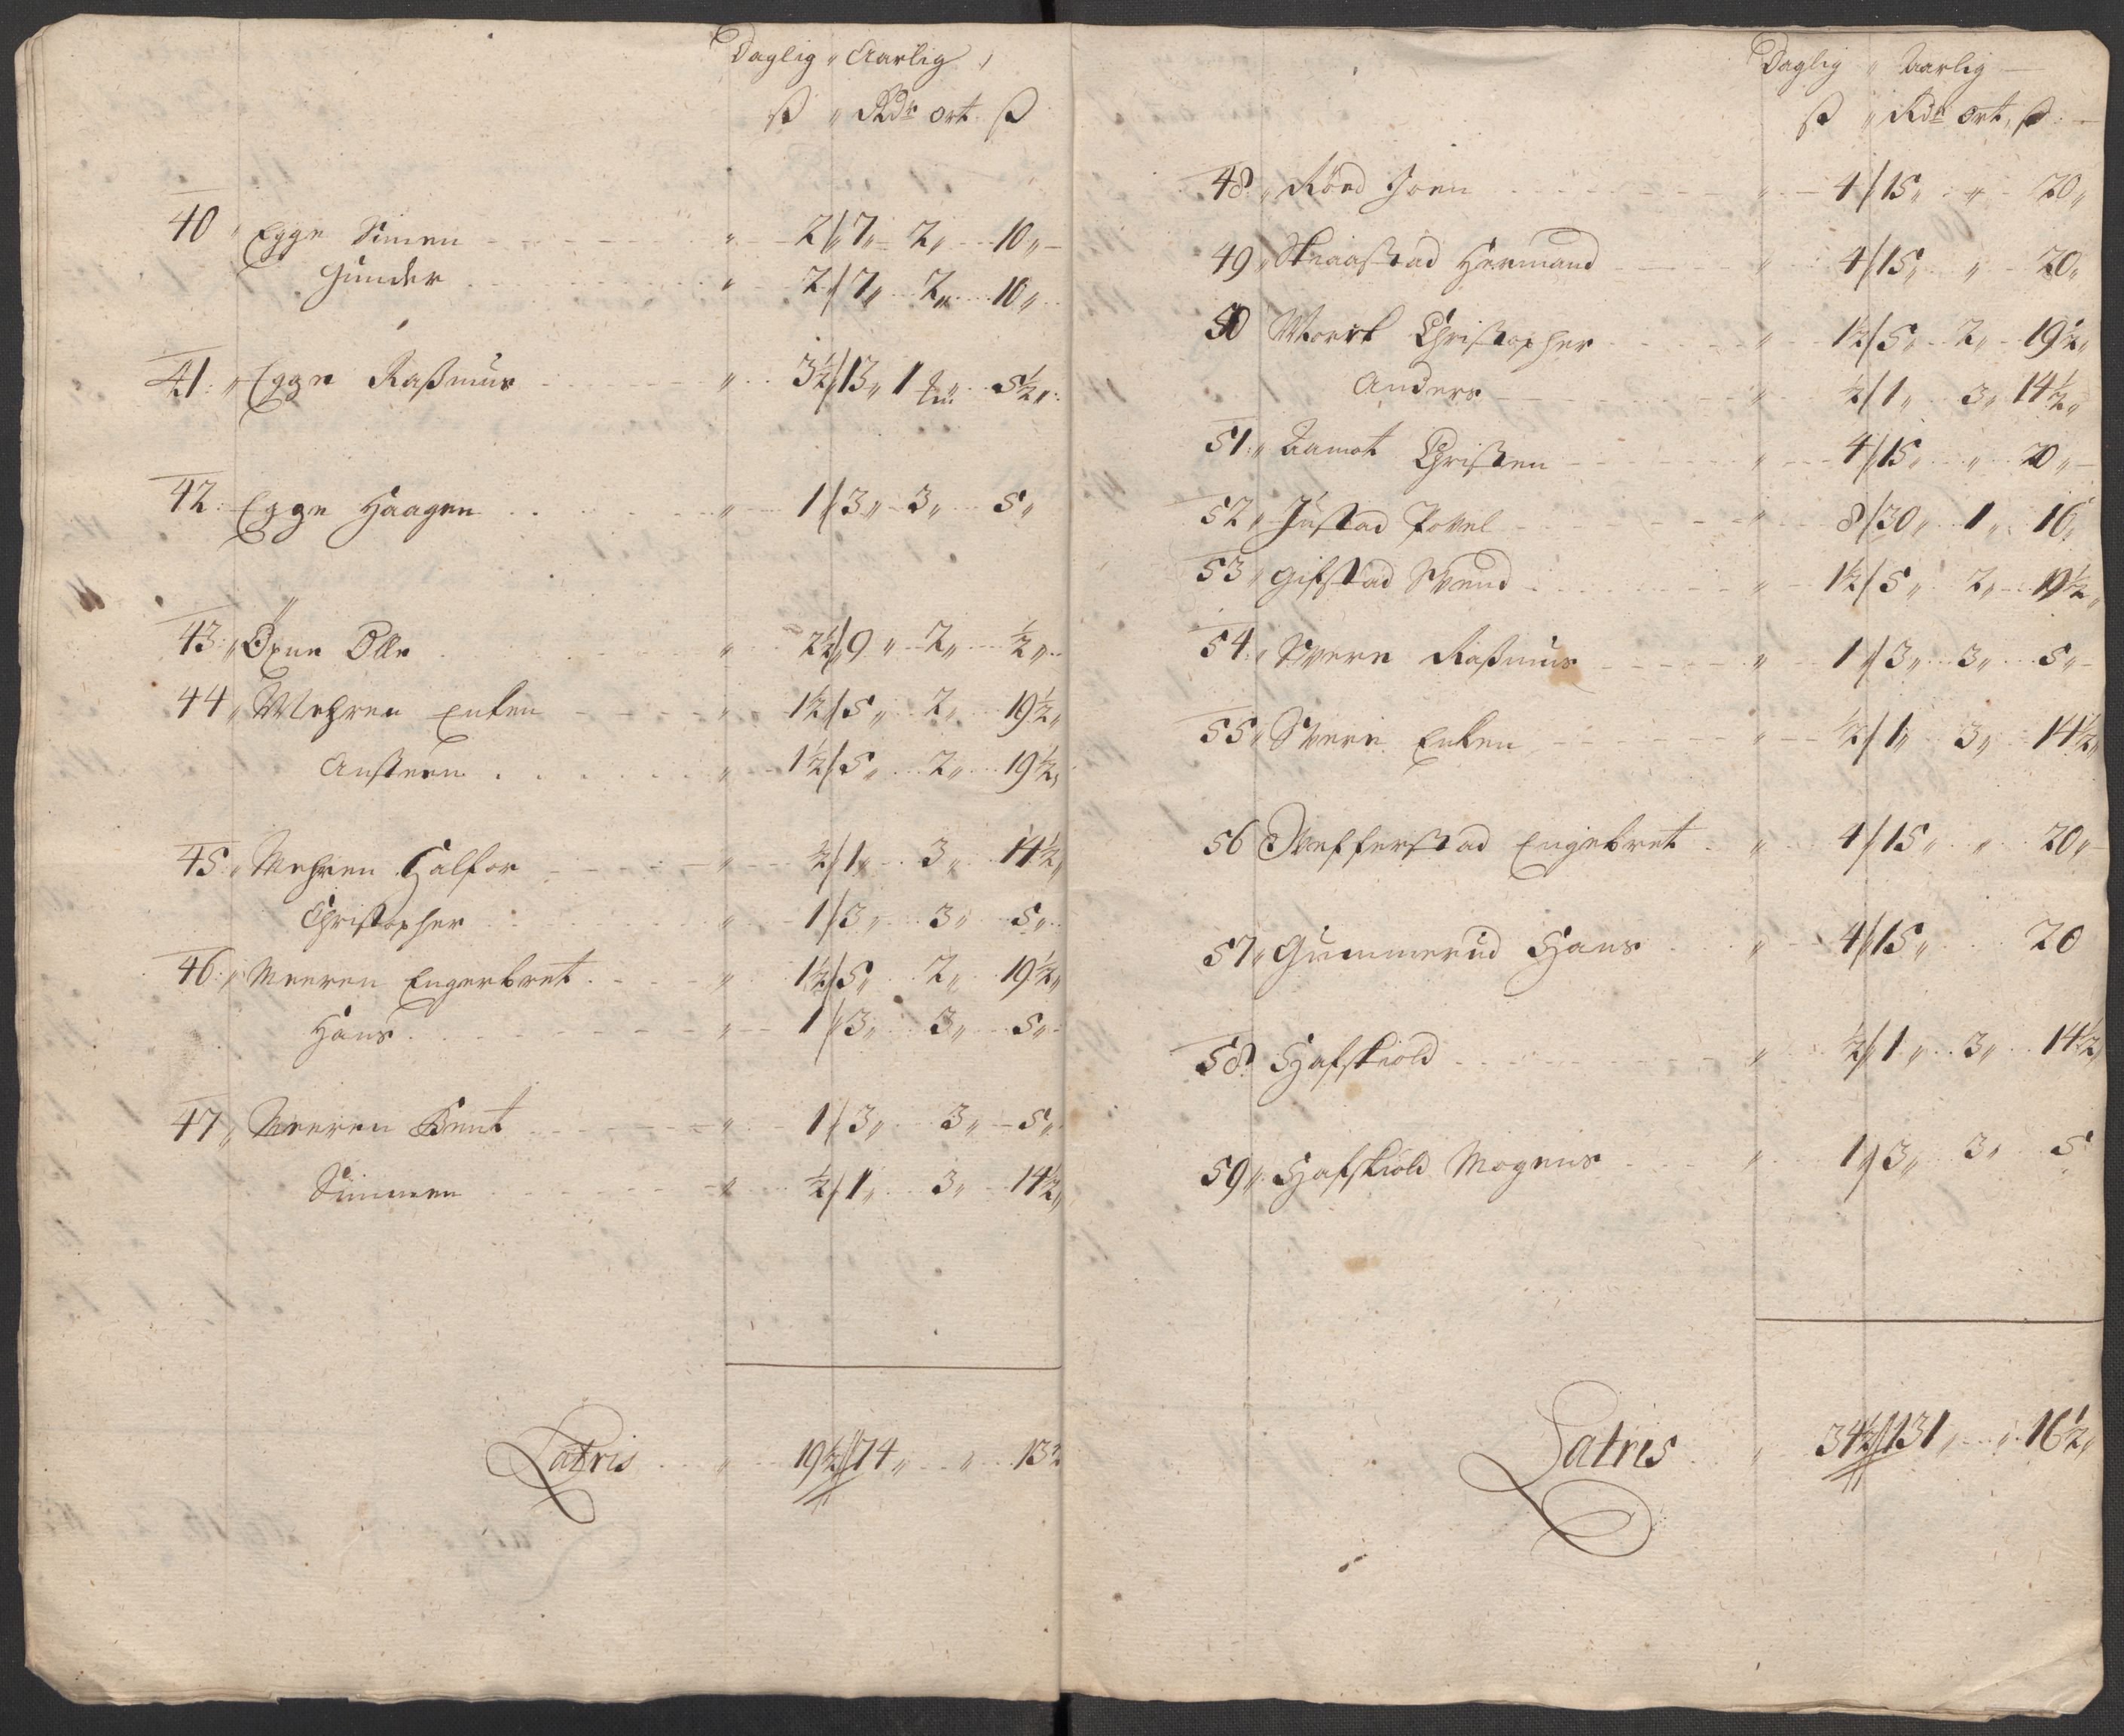 Daglig „ Aarlig
ß „ Rdr ort ß
40 „ Egge Simen „ 2 / 7 „ 2 „ 10 „
Gunder „ 2 / 7 „ 2 „ 10 „
41 „ Egge Raßmus „ 3½ / 13 „ 1 „ 5½ „
42 Egge Haagen „ 1 / 3 „ 3 „ 5 „
43 „ Öxne Olle „ 2½ / 9 „ 2 „ ½ „
44 „ Mehren Enken „ 1½ / 5 „ 2 „ 19½ „
Austeen „ 1½ / 5 „ 2 „ 19½ „
45 „ Mehren Halfor „ ½ / 1 „ 3 „ 14½ „
Christopher „ 1 / 3 „ 3 „ 5 „
46 „ Meeren Engerbret „ 1½ / 5 „ 2 „ 19½ „
Hans „ 1 / 3 „ 3 „ 5 „
47 „ Meeren Bent „ 1 / 3 „ 3 „ 5 „
Simmen „ ½ / 1 „ 3 „ 14½ „
Latris „ 19½ / 74 „ „ 13½
Daglig „ Aarlig
ß „ Rdr ort „ ß
48 „ Röed Joen „ 4 / 15 „ „ 20 „
49 „ Skaastad Hermand „ 4 / 15 „ „ 20 „
50 Moerk Christopher „ 1½ / 5 „ 2 „ 19½ „
Anders „ ½ / 1 „ 3 „ 14½ „
51 „ Aamot Christen „ 4 / 15 „ „ 20 „
52 „ Justad Povel „ 8 / 30 „ 1 „ 16 „
53 „ Gifstad Svend „ 1½ / 5 „ 2 „ 19½ „
54 „ Svere Raßmus „ 1 / 3 „ 3 „ 5 „
55 „ Svere Enken „ ½ / 1 „ 3 „ 14½ „
56 Engebret „ 4 / 15 „ „ 20 „
57 „ Gummerud Hans „ 4 / 15 „ 20
58 Hafskiold „ ½ / 1 „ 3 „ 14½ „
59 „ Hafskiold Mogens „ 1 / 3 „ 3 „ 5
Latris „ 34½ / 131 „ „ 16½ „